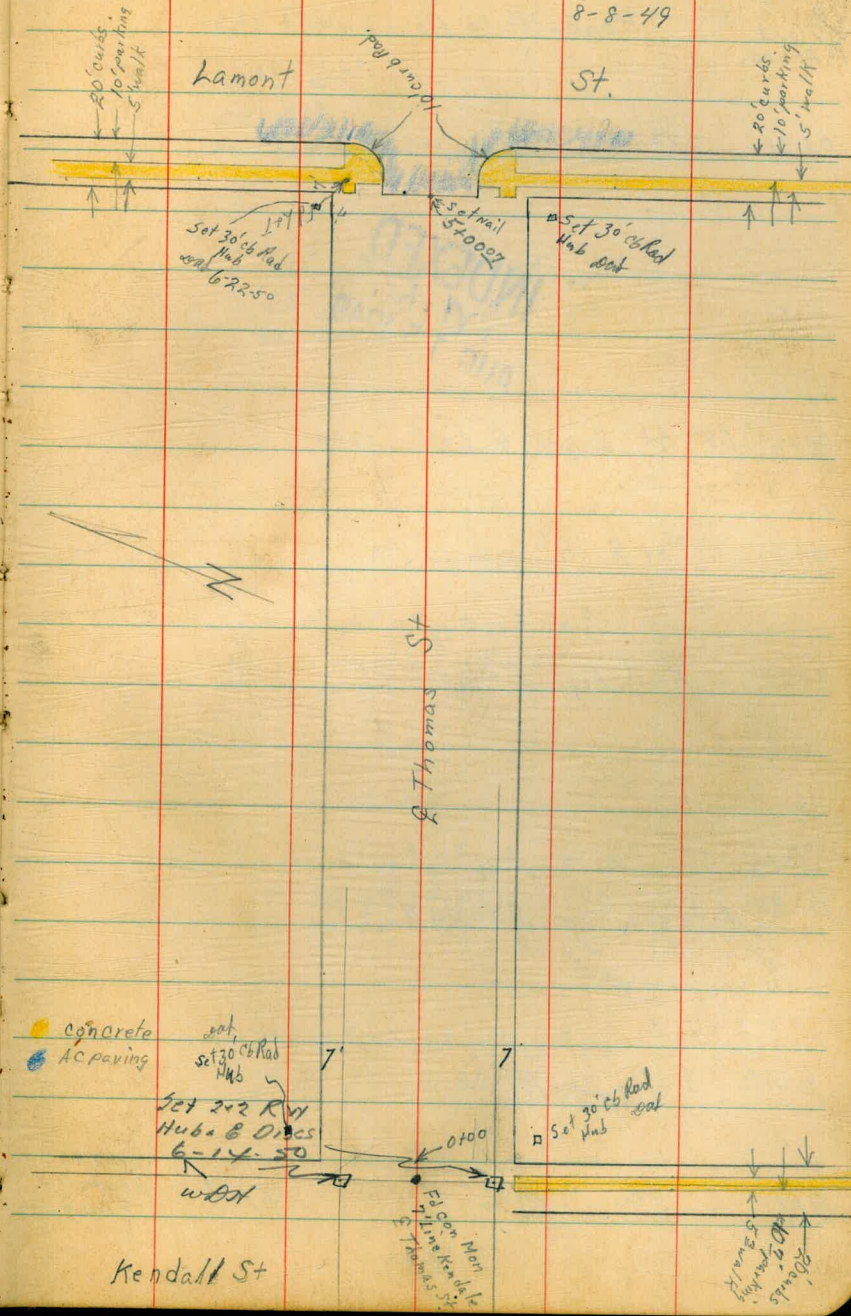 8-8-49
20' curbs.
10' parking
5' walk
Lamont
St.
10' curb Rad.
20' curbs.
10' parking
5' walk
Set 30' cb Rad
Hub
6-22-50
Set nail
Set 30' cb Rad
Hub
N
℄ Thomas St
concrete
AC paving
Set 30' cb Rad
Hub
7'
7
Set 2x2 RW
Hubs & Discs
6-14-50
0+00
Set 30' cb Rad
Hub
Fd con Mon
Line Kendale
℄ Thomas St
Kendall St
20'
curbs
parking
walk